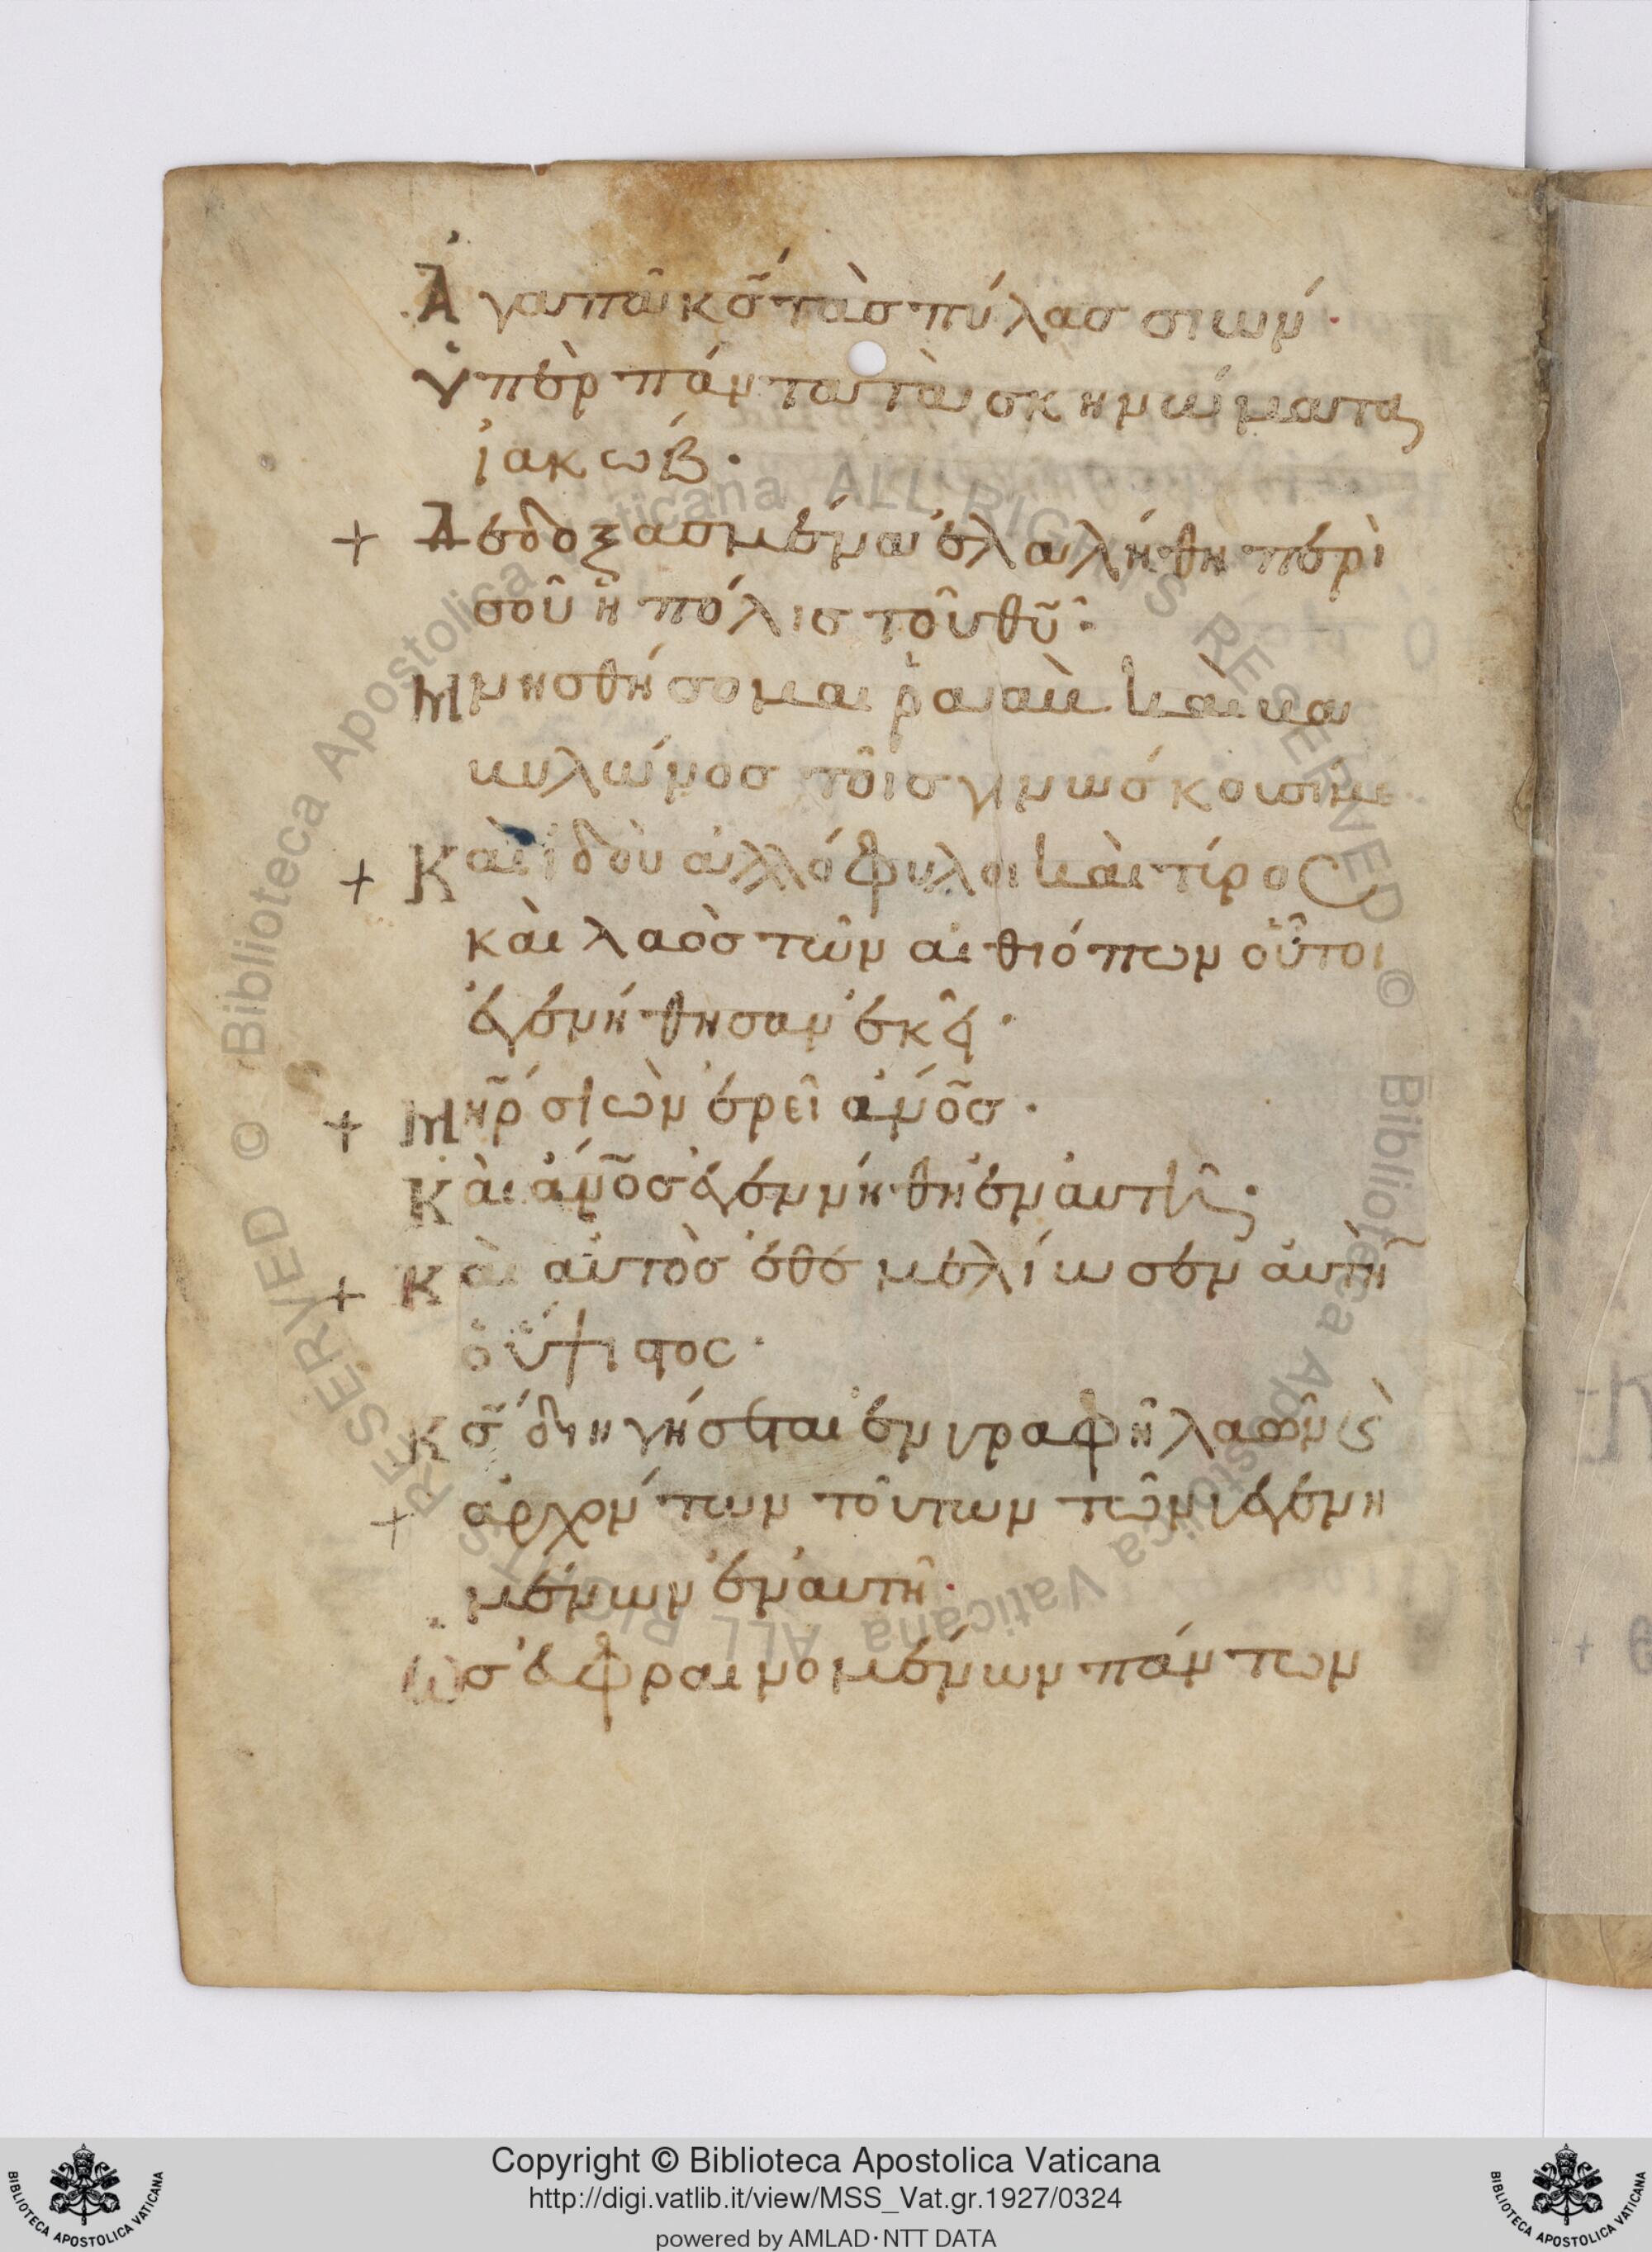 Ἀγαπᾶι κ̅ς̅ τὰσ πύλασ σιών·
Ὑπὲρ πάντα τὰ σκηνώματα
ἰακώβ·
+ Δεδοξασμένα ἐλαλήθη περὶ
σοῦ ἡ πόλισ τοῦ θ̅υ̅·
Μνησθήσομαι ῥαὰβ καὶ βα
βυλῶνοσ τοῖσ γινώσκουσί με
+ Καὶ ἰδοὺ ἀλλόφυλοι καὶ τύροσ
καὶ λαὸσ τῶν αἰθιόπων οὗτοι
ἐγενήθησαν ἐκεῖ·
+ Μ̅η̅ρ̅ σιὼν ἐρεῖ ἄ̅ν̅ο̅σ̅·
Καὶ ἄ̅ν̅ο̅σ̅ ἐγεννήθη ἐν αὐτῆ·
+ Καὶ αὐτὸσ ἐθεμελίωσεν αὐτὴν
ὁ ὕψιστοσ·
Κ̅σ̅ διηγήσεται ἐν γραφῆ λαῶν καὶ
+ ἀρχόντων τούτων τῶν γεγενη
μένων ἐν αὐτῆ·
Ὡσ εὐφραινομένων πάντων
© Biblioteca Apostolica Vaticana ALL RIGHTS RESERVED
© Biblioteca Apostolica Vaticana ALL RIGHTS RESERVED
BIBLIOTECA APOSTOLICA VATICANA
Copyright © Biblioteca Apostolica Vaticana
http://digi.vatlib.it/view/MSS_Vat.gr.1927/0324
powered by AMLAD·NTT DATA
BIBLIOTECA APOSTOLICA VATICANA